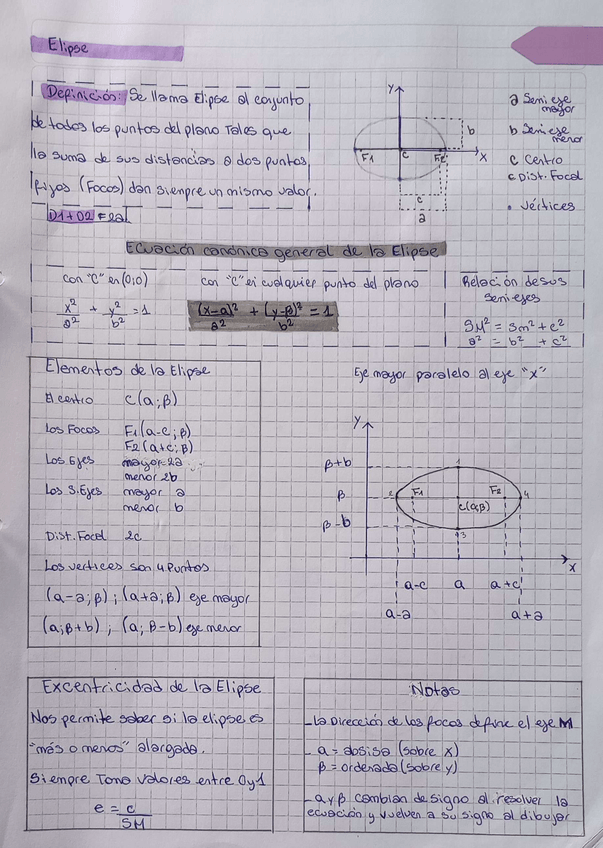 Elipse
Definición: Se llama Elipse al conjunto
de todos los puntos del plano Tales que
la suma de sus distancias a dos puntos
fijos (Focos) dan siempre un mismo valor.
D1+D2=2a
y
b
F1
c
F2
x
c
a
a Semi eje
mayor
b Semi eje
menor
c Centro
c Dist. Focal
• Vértices
Ecuación canónica general de la Elipse
con "C" en (0;0)
x²/a² + y²/b² = 1
con "C" en cualquier punto del plano
(x-α)²/a² + (y-β)²/b² = 1
Relación de sus
semiejes
SM² = Sm² + c²
a² = b² + c²
Elementos de la Elipse
El centro C(α;β)
Los Focos F1(α-c;β)
F2(α+c;β)
Los Ejes mayor 2a
menor 2b
Los S.Ejes mayor a
menor b
Dist. Focal 2c
Los vertices son 4 puntos
(α-a;β) ; (α+a;β) eje mayor
(α;β+b) ; (α;β-b) eje menor
Eje mayor paralelo al eje "x"
y
β+b
1
β
2
F1
F2
4
C(α;β)
β-b
3
x
α-c
α
α+c
α-a
α+a
Excentricidad de la Elipse
Nos permite saber si la elipse es
"más o menos" alargada.
Siempre Toma valores entre 0 y 1
e = c/SM
Notas
-La Dirección de los focos define el eje M
- α = absisa (sobre x)
β = ordenada (sobre y)
- α y β cambian de signo al resolver la
ecuación y vuelven a su signo al dibujar